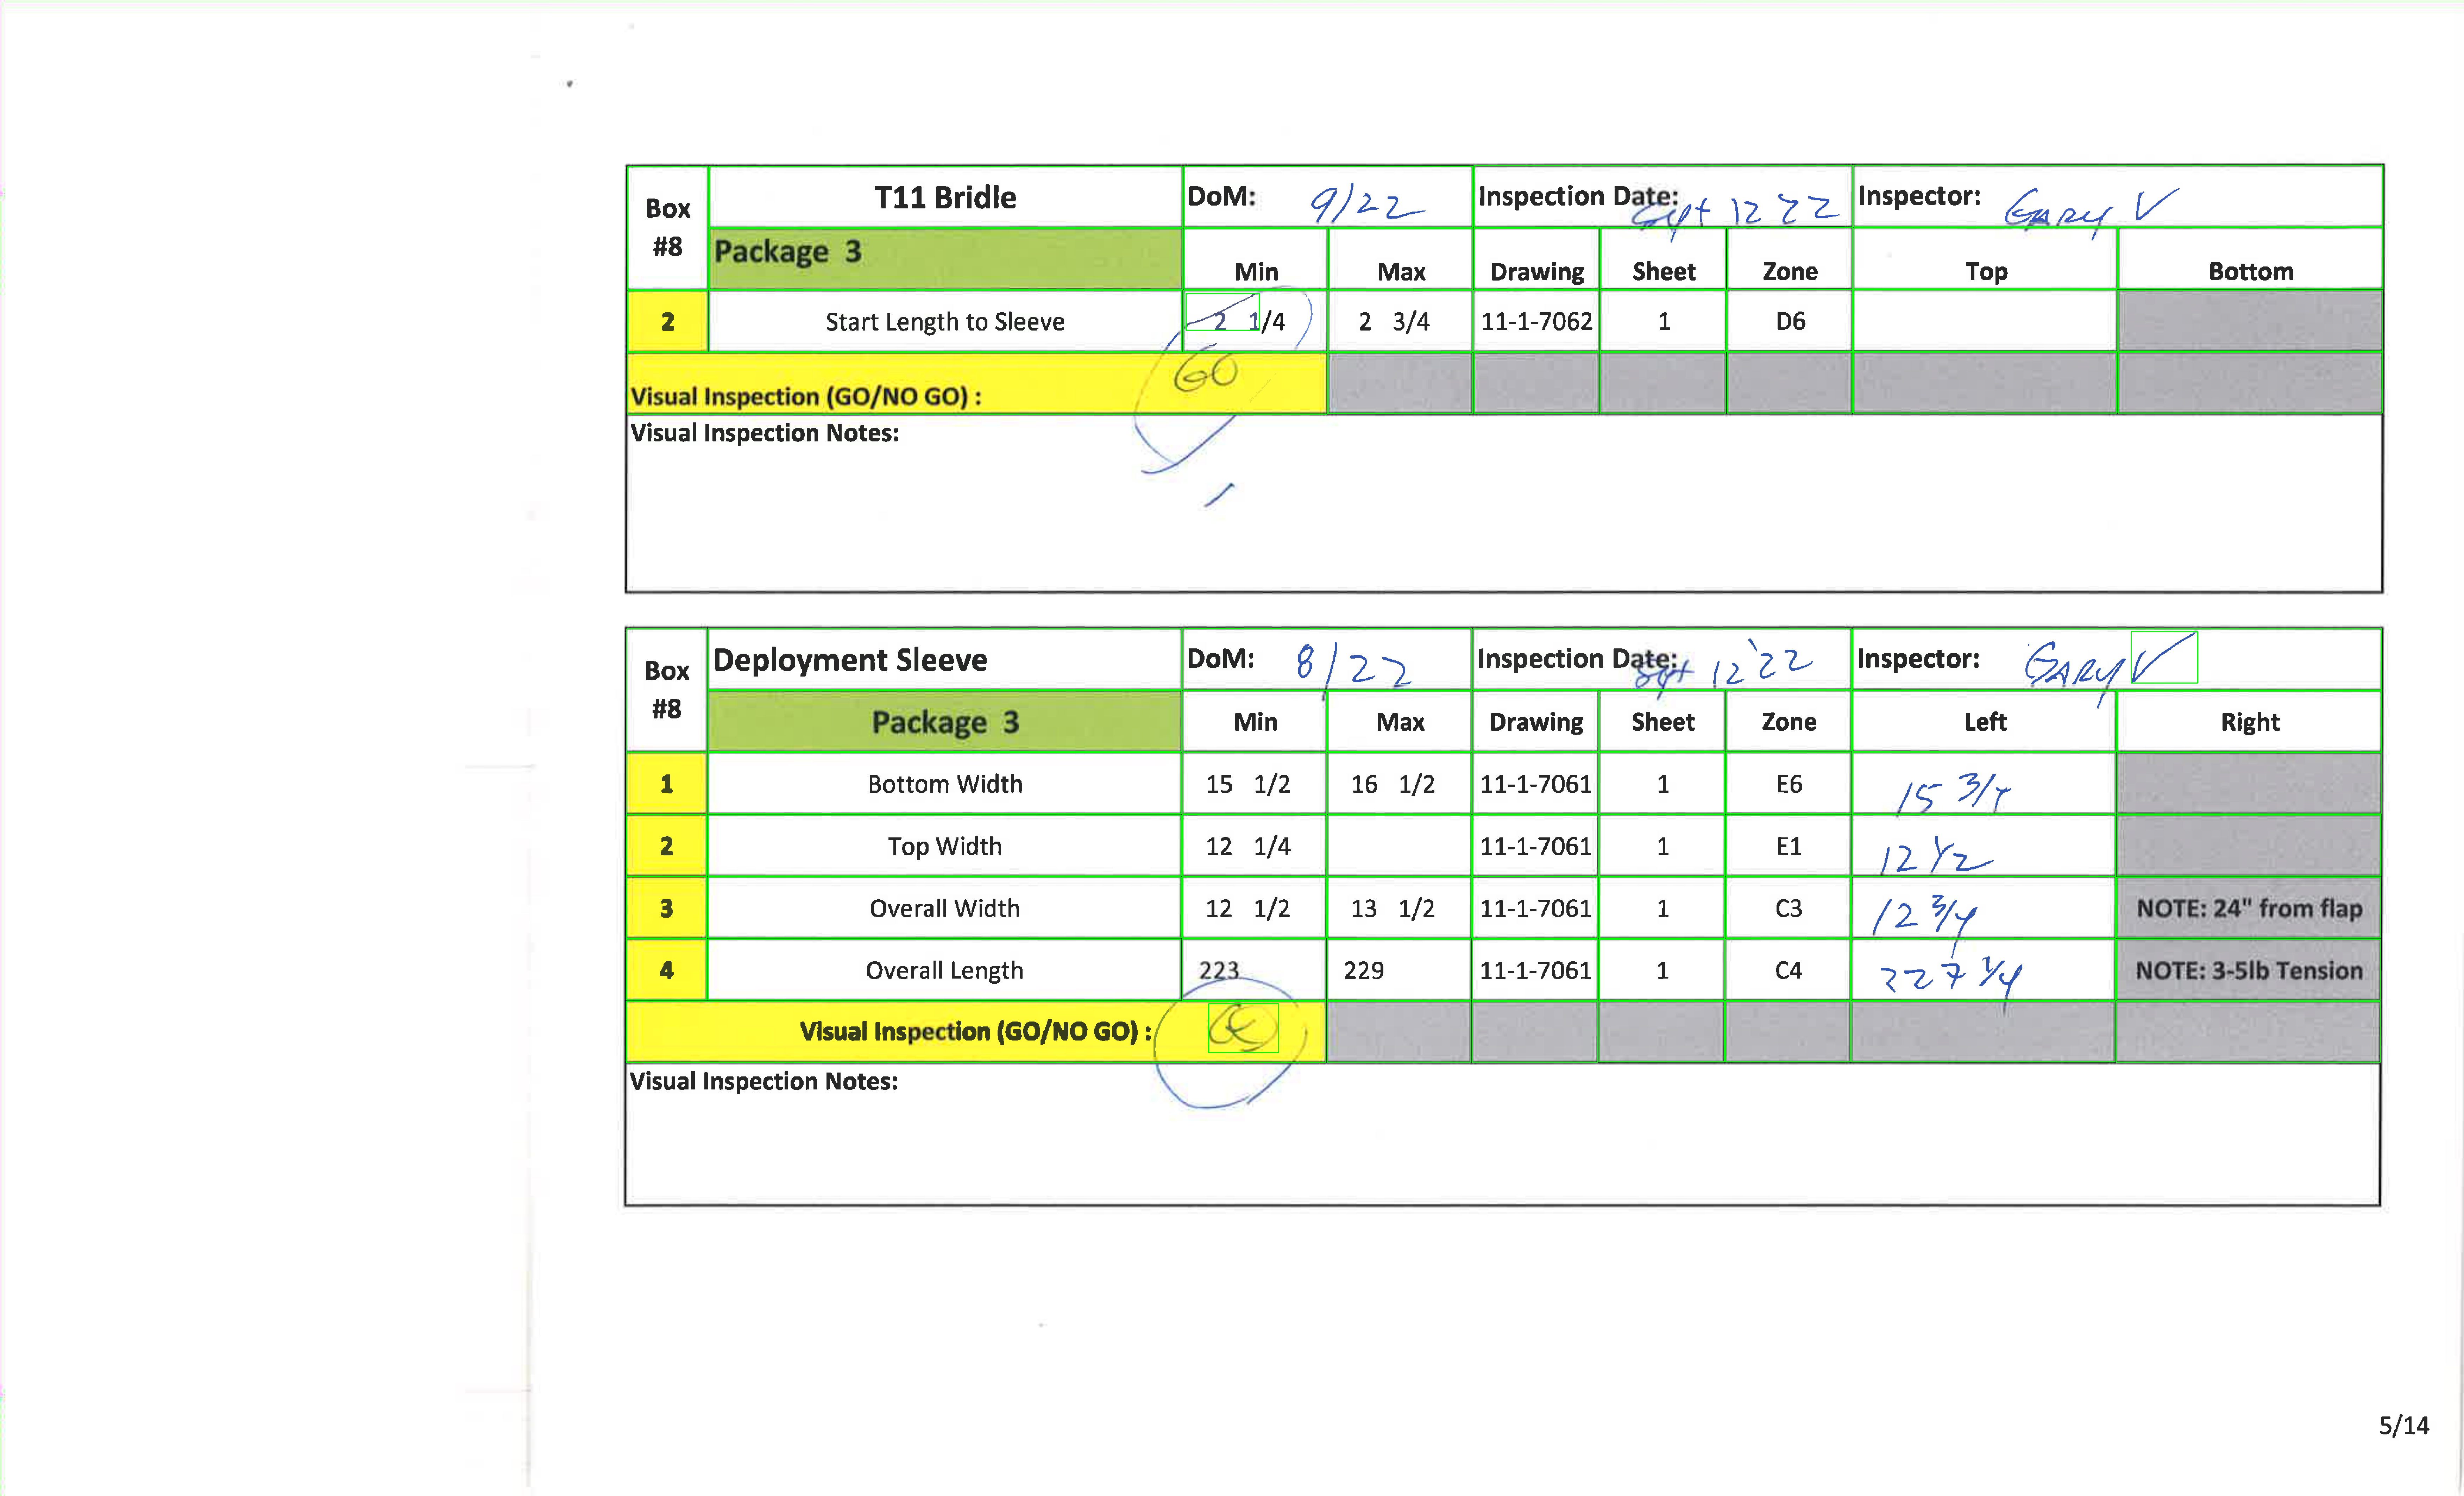 Box #8 T11 Bridle DoM: 9/22 Inspection Date: Sept 12 22 Inspector: GARY V
Package 3 Min Max Drawing Sheet Zone Top Bottom
2 Start Length to Sleeve 2 1/4 2 3/4 11-1-7062 1 D6
Visual Inspection (GO/NO GO) : GO
Visual Inspection Notes:
Box #8 Deployment Sleeve DoM: 8/22 Inspection Date: Sept 12 '22 Inspector: GARY V
Package 3 Min Max Drawing Sheet Zone Left Right
1 Bottom Width 15 1/2 16 1/2 11-1-7061 1 E6 15 3/4
2 Top Width 12 1/4 11-1-7061 1 E1 12 1/2
3 Overall Width 12 1/2 13 1/2 11-1-7061 1 C3 12 3/4 NOTE: 24" from flap
4 Overall Length 223 229 11-1-7061 1 C4 227 1/4 NOTE: 3-5lb Tension
Visual Inspection (GO/NO GO) :
Visual Inspection Notes:
5/14